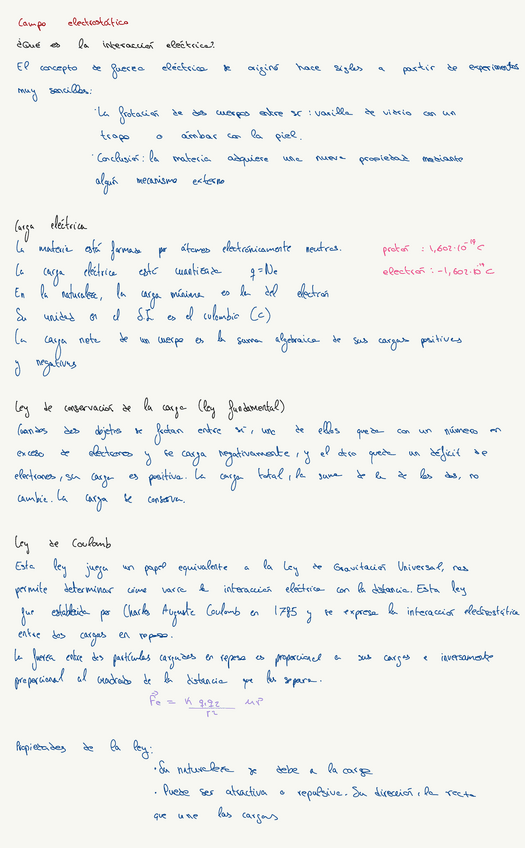 Campo electrostático
¿Qué es la interacción eléctrica?
El concepto de fuerza eléctrica se originó hace siglos a partir de experimentos
muy sencillos:
· La frotación de dos cuerpos entre sí: varilla de vidrio con un
trapo o ámbar con la piel.
· Conclusión: la materia adquiere una nueva propiedad mediante
algún mecanismo externo
Carga eléctrica
La materia está formada por átomos electrónicamente neutros.
protón : 1,602·10⁻¹⁹ C
La carga eléctrica está cuantizada q=Ne
electrón : -1,602·10⁻¹⁹ C
En la naturaleza, la carga mínima es la del electrón
Su unidad en el S.I es el culombio (C)
La carga neta de un cuerpo es la suma algebraica de sus cargas positivas
y negativas
Ley de conservación de la carga (ley fundamental)
Cuando dos objetos se frotan entre sí, uno de ellos queda con un número en
exceso de electrones y se carga negativamente, y el otro queda un déficit de
electrones, su carga es positiva. La carga total, la suma de la de los dos, no
cambia. La carga se conserva.
Ley de Coulomb
Esta ley juega un papel equivalente a la Ley de Gravitación Universal, nos
permite determinar cómo varía la interacción eléctrica con la distancia. Esta ley
fue establecida por Charles Auguste Coulomb en 1785 y se expresa la interacción electrostática
entre dos cargas en reposo.
La fuerza entre dos partículas cargadas en reposo es proporcional a sus cargas e inversamente
proporcional al cuadrado de la distancia que las separa.
F⃗e = K q₁q₂ / r² ur⃗
Propiedades de la ley:
· Su naturaleza se debe a la carga
· Puede ser atractiva o repulsiva. Su dirección, la recta
que une las cargas